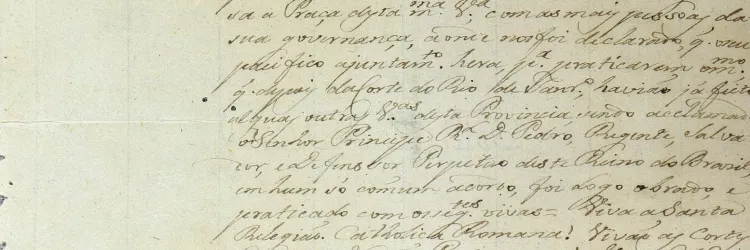 sa a Praça desta m.ma V.a, com as mais pessoas, da
sua governança, aonde nos foi declarado, q. o nu
pacifico ajuntam.to hera, p.a praticarem o m.mo
q. depois da Corte do Rio de Jan.o, havião já feito
algũas outras V.as desta Provincia, sendo acclamado
o Senhor Principe R.l D. Pedro, Regente, Salva
dor, e Defensor Perpetuo deste Reino do Brasil,
em hum só comum acordo, foi logo obrado, e
praticado com os seg.tes vivas = Viva a Santa
Religião Catholica Romana! Vivão as Cortes